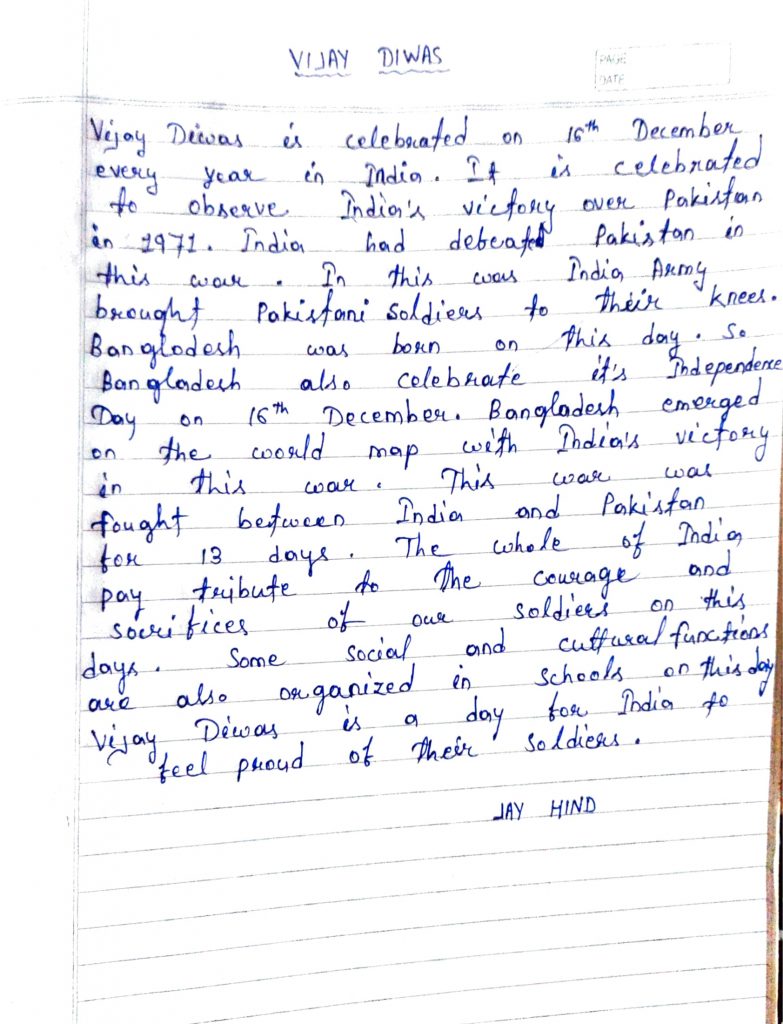 VIJAY DIWAS
PAGE
DATE
Vijay Diwas is celebrated on 16th December
every year in India. It is celebrated
to observe India's victory over Pakistan
in 1971. India had defeated Pakistan in
this war. In this war India Army
brought Pakistani soldiers to their knees.
Bangladesh was born on this day. So
Bangladesh also celebrate it's Independence
Day on 16th December. Bangladesh emerged
on the world map with India's victory
in this war. This war was
fought between India and Pakistan
for 13 days. The whole of India
pay tribute to the courage and
sacrifices of our soldiers on this
days. Some social and cultural functions
are also organized in schools on this day
Vijay Diwas is a day for India to
feel proud of their soldiers.
JAY HIND